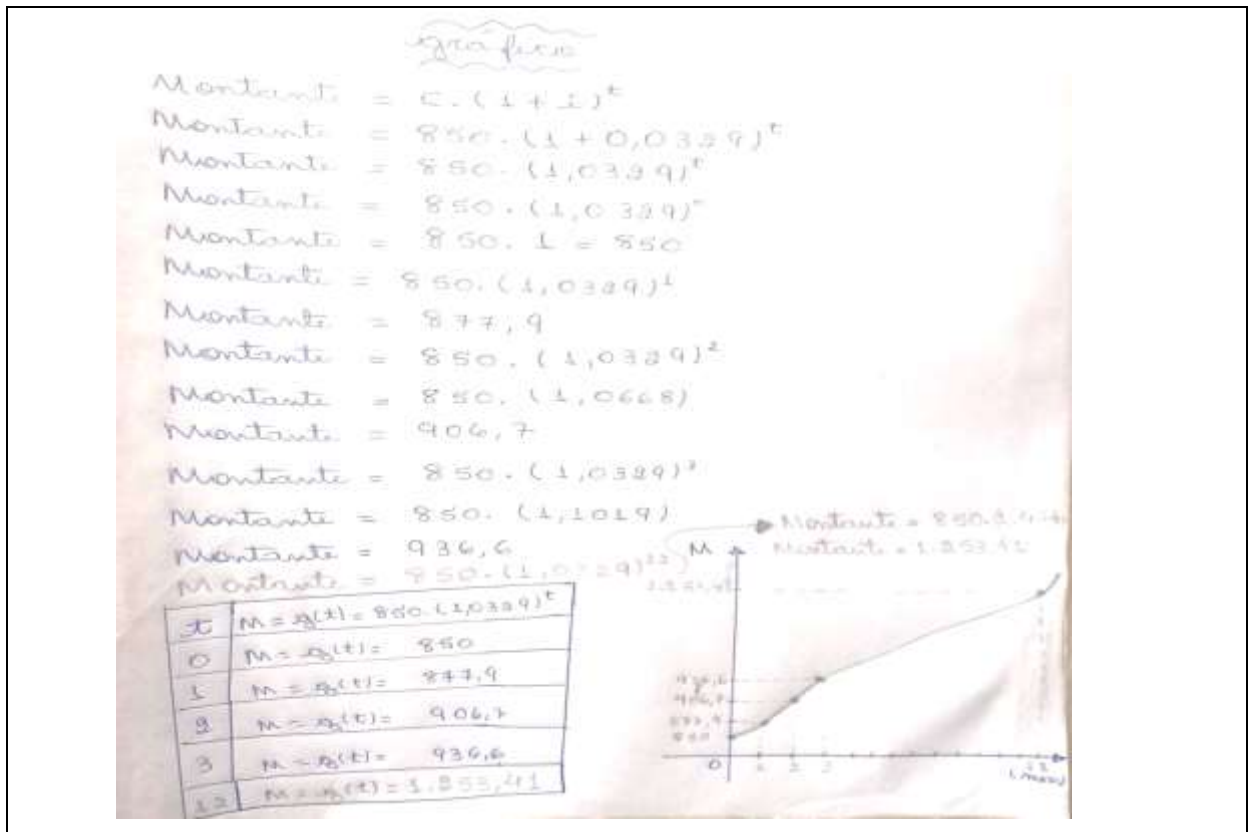 gráfico
Montante = C.(1+i)^t
Montante = 850.(1+0,0329)^t
Montante = 850.(1,0329)^t
Montante = 850.(1,0329)
Montante = 850.1 = 850
Montante = 850.(1,0329)^1
Montante = 877,9
Montante = 850.(1,0329)^2
Montante = 850.(1,0668)
Montante = 906,7
Montante = 850.(1,0329)^3
Montante = 850.(1,1019)
Montante = 936,6
Montante = 850.(1,0329)^12
Montante = 850.1,4
Montante = 1.253,41
t M = g(t) = 850.(1,0329)^t
0 M = g(t) = 850
1 M = g(t) = 877,9
2 M = g(t) = 906,7
3 M = g(t) = 936,6
12 M = g(t) = 1.253,41
M
1.253,41
936,6
906,7
877,9
850
0 1 2 3 12